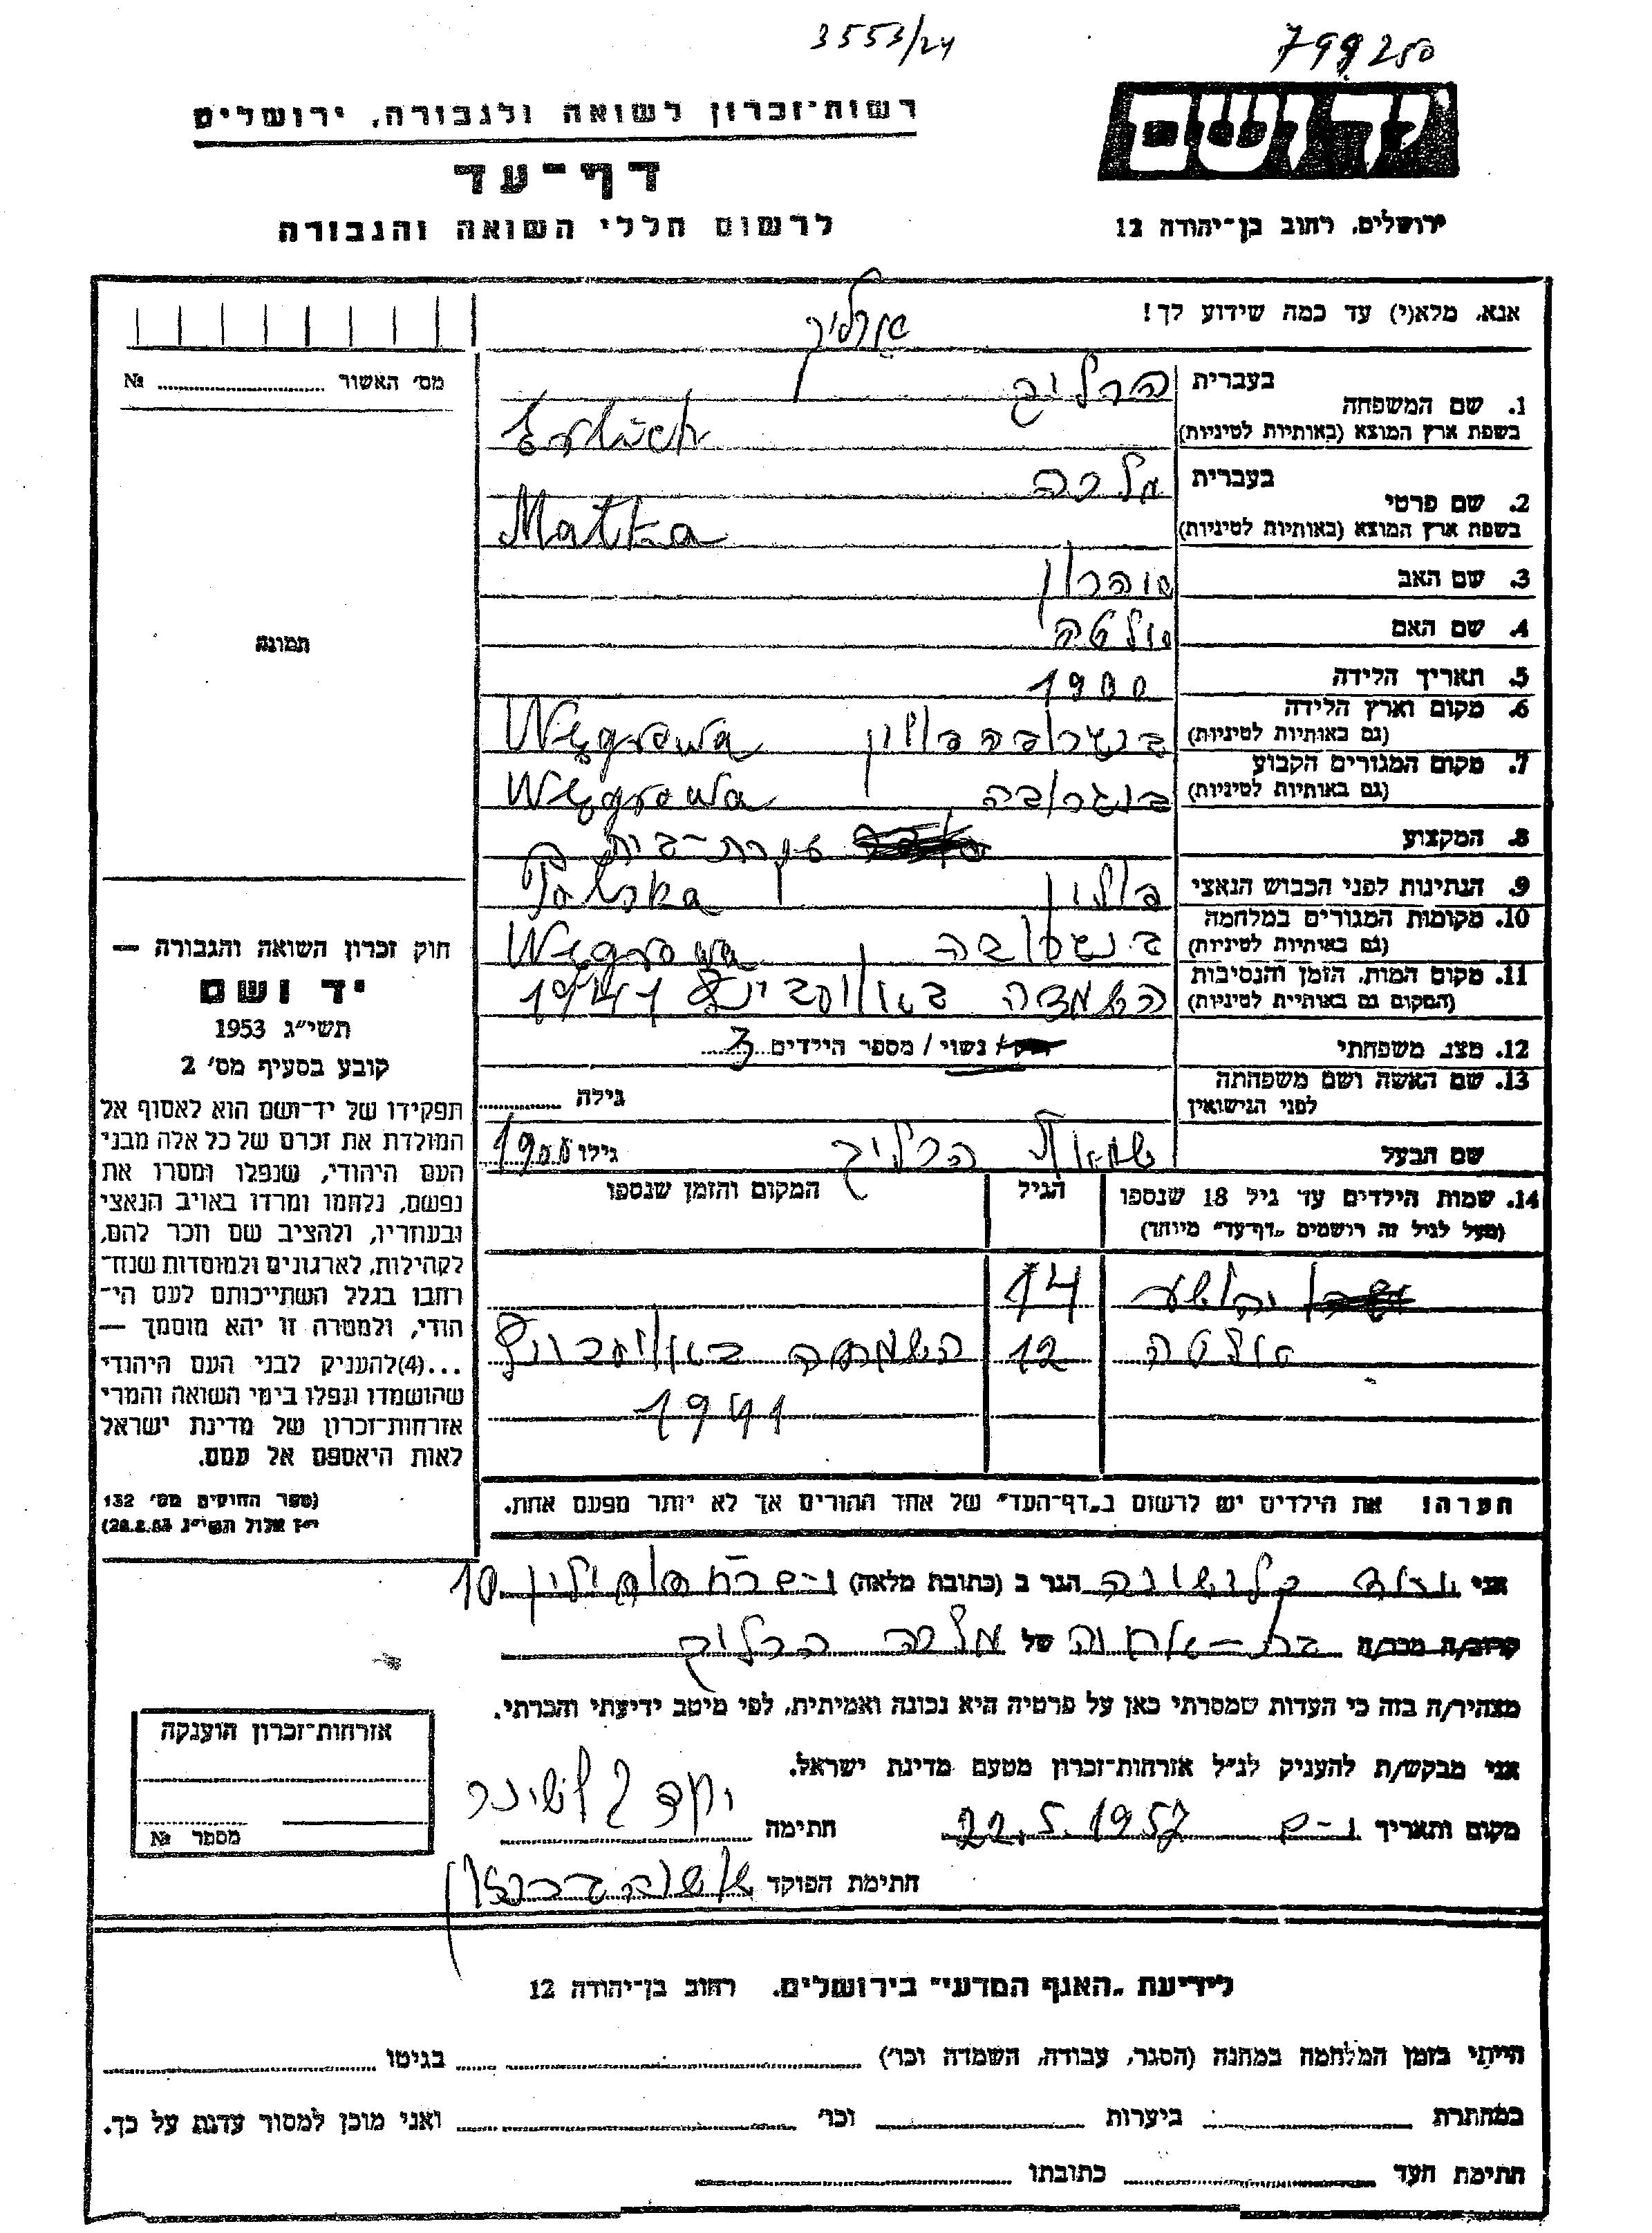 3553/24
799250
רשות-זכרון לשואה ולגבורה, ירושלים
יד ושם
דף-עד
לרשום חללי השואה והגבורה
ירושלים, רחוב בן-יהודה 12
אנא, מלא(י) עד כמה שידוע לך!
ארליך
מס׳ האשור № ........
בעברית הרליך
1. שם המשפחה
בשפת ארץ המוצא (באותיות לטיניות) Erlich
בעברית מלכה
2. שם פרטי
בשפת ארץ המוצא (באותיות לטיניות) Malka
3. שם האב אהרון
4. שם האם
תמונה
5. תאריך הלידה 1900
6. מקום וארץ הלידה
(גם באותיות לטיניות) פולין Węgrowa
7. מקום המגורים הקבוע
(גם באותיות לטיניות) ונגרובה Węgrowa
8. המקצוע עקרת-בית
9. הנתינות לפני הכבוש הנאצי פולין Polska
10. מקומות המגורים במלחמה
(גם באותיות לטיניות) Węgrowa
11. מקום המות, הזמן והנסיבות
(המקום גם באותיות לטיניות) השמדה באושביץ 1941
12. מצב משפחתי נשוי / מספר הילדים 3
13. שם האשה ושם משפחתה
לפני הנישואין
גילה ........
שם הבעל שמואל הרליך גילו 1900
14. שמות הילדים עד גיל 18 שנספו
(מעל לגיל זה רושמים „דף-עד״ מיוחד)
הגיל
המקום והזמן שנספו
יהושע 14
12 השמדה
1941
הערה! את הילדים יש לרשום ב„דף-העד״ של אחד ההורים אך לא יותר מפעם אחת.
חוק זכרון השואה והגבורה —
יד ושם
תשי״ג 1953
קובע בסעיף מס׳ 2
תפקידו של יד-ושם הוא לאסוף אל
המולדת את זכרם של כל אלה מבני
העם היהודי, שנפלו ומסרו את
נפשם, נלחמו ומרדו באויב הנאצי
ובעוזריו, ולהציב שם וזכר להם,
לקהילות, לארגונים ולמוסדות שנח-
רחבו בגלל השתייכותם לעם הי-
הודי, ולמטרה זו יהא מוסמך —
...(4)להעניק לבני העם היהודי
שהושמדו ונפלו בימי השואה והמרי
אזרחות-זכרון של מדינת ישראל
לאות היאספם אל עמם.
(ספר החוקים מס׳ 132
י״ז אלול תשי״ג 28.8.53)
אני הגר ב (כתובת מלאה) 10
קרוב/ה מכר/ה בת-אחות של מלכה הרליך
מצהיר/ה בזה כי העדות שמסרתי כאן על פרטיה היא נכונה ואמיתית, לפי מיטב ידיעתי והכרתי.
אני מבקש/ת להעניק לנ״ל אזרחות-זכרון מטעם מדינת ישראל.
מקום ותאריך 22.5.1957 חתימה
חתימת הפוקד
אזרחות-זכרון הוענקה
מספר №
לידיעת „האגף המדעי״ בירושלים, רחוב בן-יהודה 12
הייתי בזמן המלחמה במחנה (הסגר, עבודה, השמדה וכו׳) ........ בגיטו ........
במחתרת ........ ביערות ........ וכו׳ ........ ואני מוכן למסור עדות על כך.
חתימת העד ........ כתובתו ........